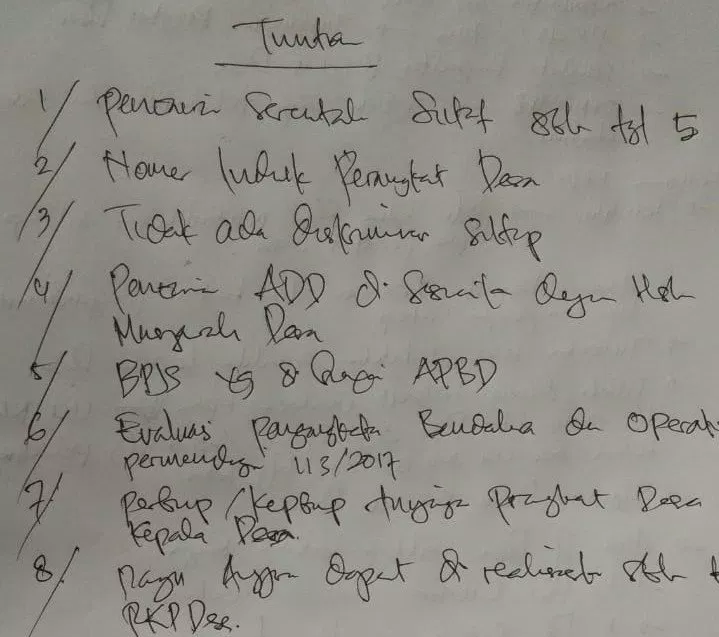 Tuntutan
1/ Pencairan Serentak Siltap sblm tgl 5
2/ Nomer Induk Perangkat Desa
3/ Tidak ada diskriminasi Siltap
4/ Pencairan ADD di Sesuaikan dengan Hsl
Musyawarah Desa
5/ BPJS yg di APBD
6/ Evaluasi pengangkatan Bendahara dan Operat
permendagri 113/2017
7/ perbup/kepbup perangkat Desa
Kepala Desa.
8/ pagu dapat di realisasi sblm
RKPDes.